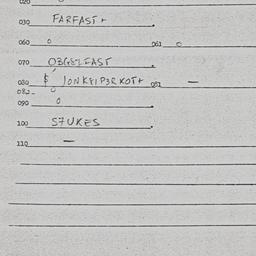 020
030 FARFAST+
060 0 061 0
070
080 $ 081 —
082 0
090 0
100 S7UKES
110 —